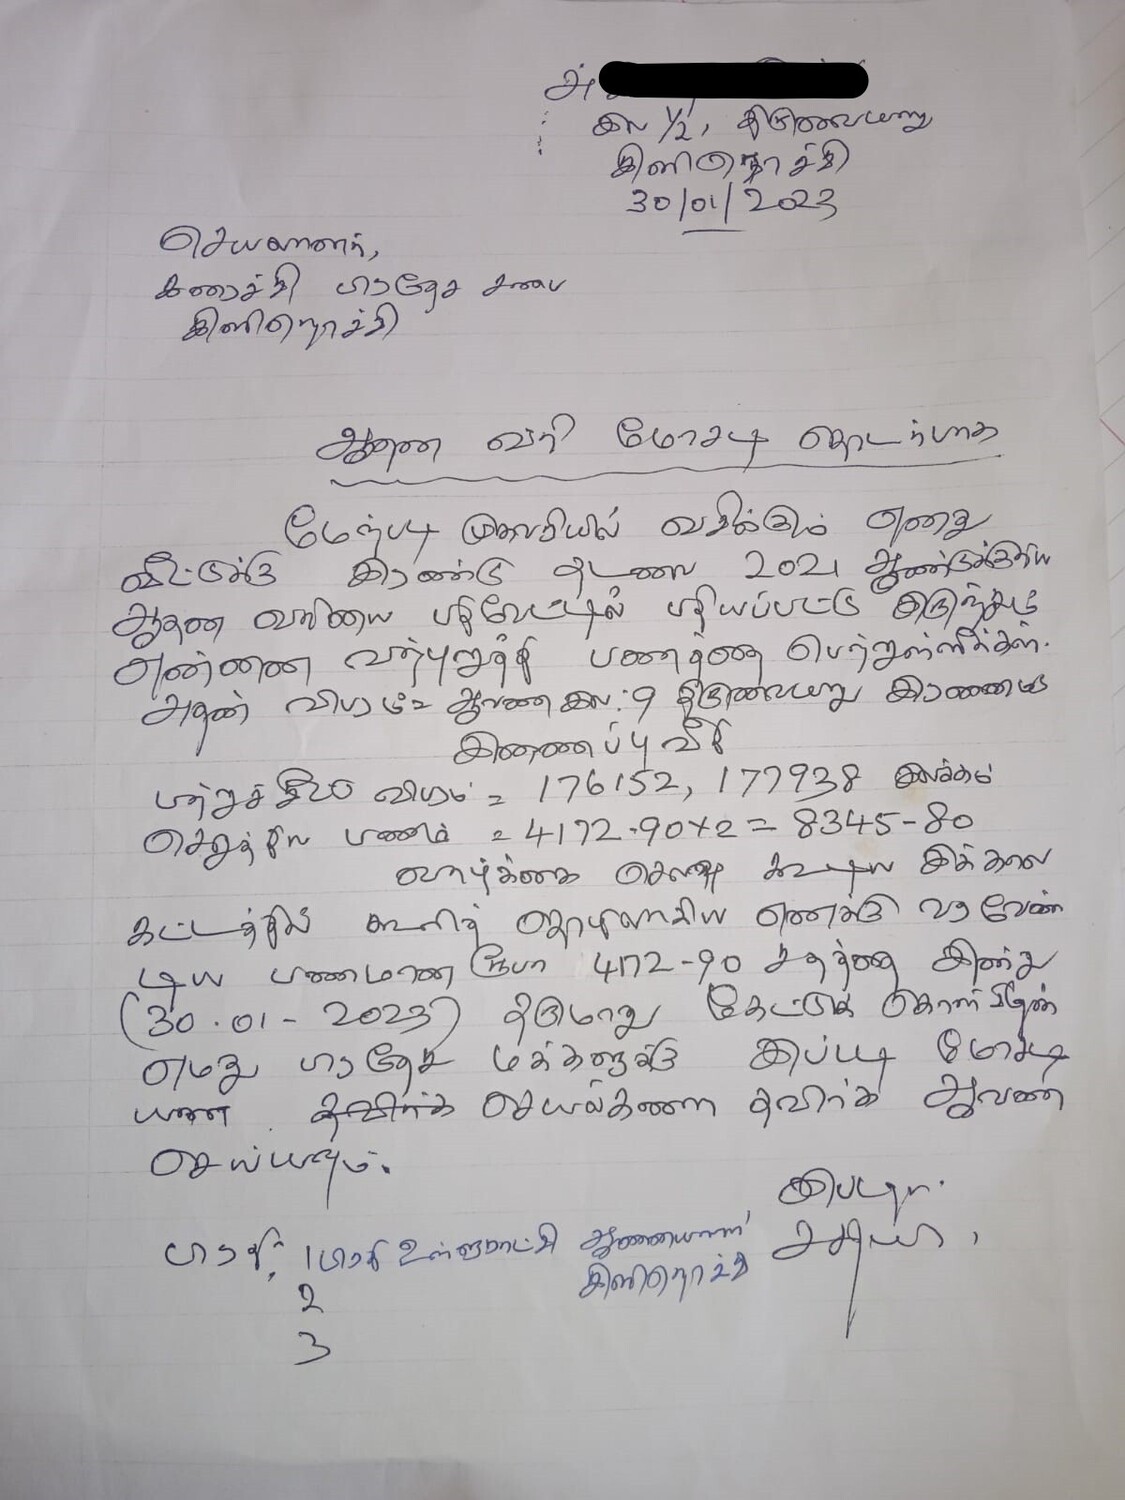 இல 1/2, திருவையாறு
கிளிநொச்சி
30/01/2023
செயலாளர்,
கரைச்சி பிரதேச சபை
கிளிநொச்சி
ஆதன வரி மோசடி தொடர்பாக
மேற்படி முகவரியில் வசிக்கும் எனது
வீட்டுக்கு இரண்டு தடவை 2021 ஆண்டுக்குரிய
ஆதன வரியை பதிவேட்டில் பதியப்பட்டு இருந்தும்
என்னை வற்புறுத்தி பணத்தை பெற்றுள்ளீர்கள்.
அதன் விபரம் = ஆவண இல: 9 திருவையாறு இரணைமடு
இணைப்பு வீதி
பற்றுச்சீட்டு விபரம் = 176152, 177938 இலக்கம்
செலுத்திய பணம் = 4172-90x2 = 8345-80
வாழ்க்கை செலவு கூடிய இக்கால
கட்டத்தில் கூலித் தொழிலாளிய எனக்கு வரவேண்
டிய பணமான ரூபா 4172-90 சதத்தை இன்று
(30.01-2023) தருமாறு கேட்டுக் கொள்கிறேன்
எமது பிரதேச மக்களுக்கு இப்படி மோசடி
யான செயல்களை தவிர்க்க ஆவண
செய்யவும்.
இப்படிக்கு
பிரதி: 1 பிரதி உள்ளுராட்சி ஆணையாளர்
கிளிநொச்சி
2
3